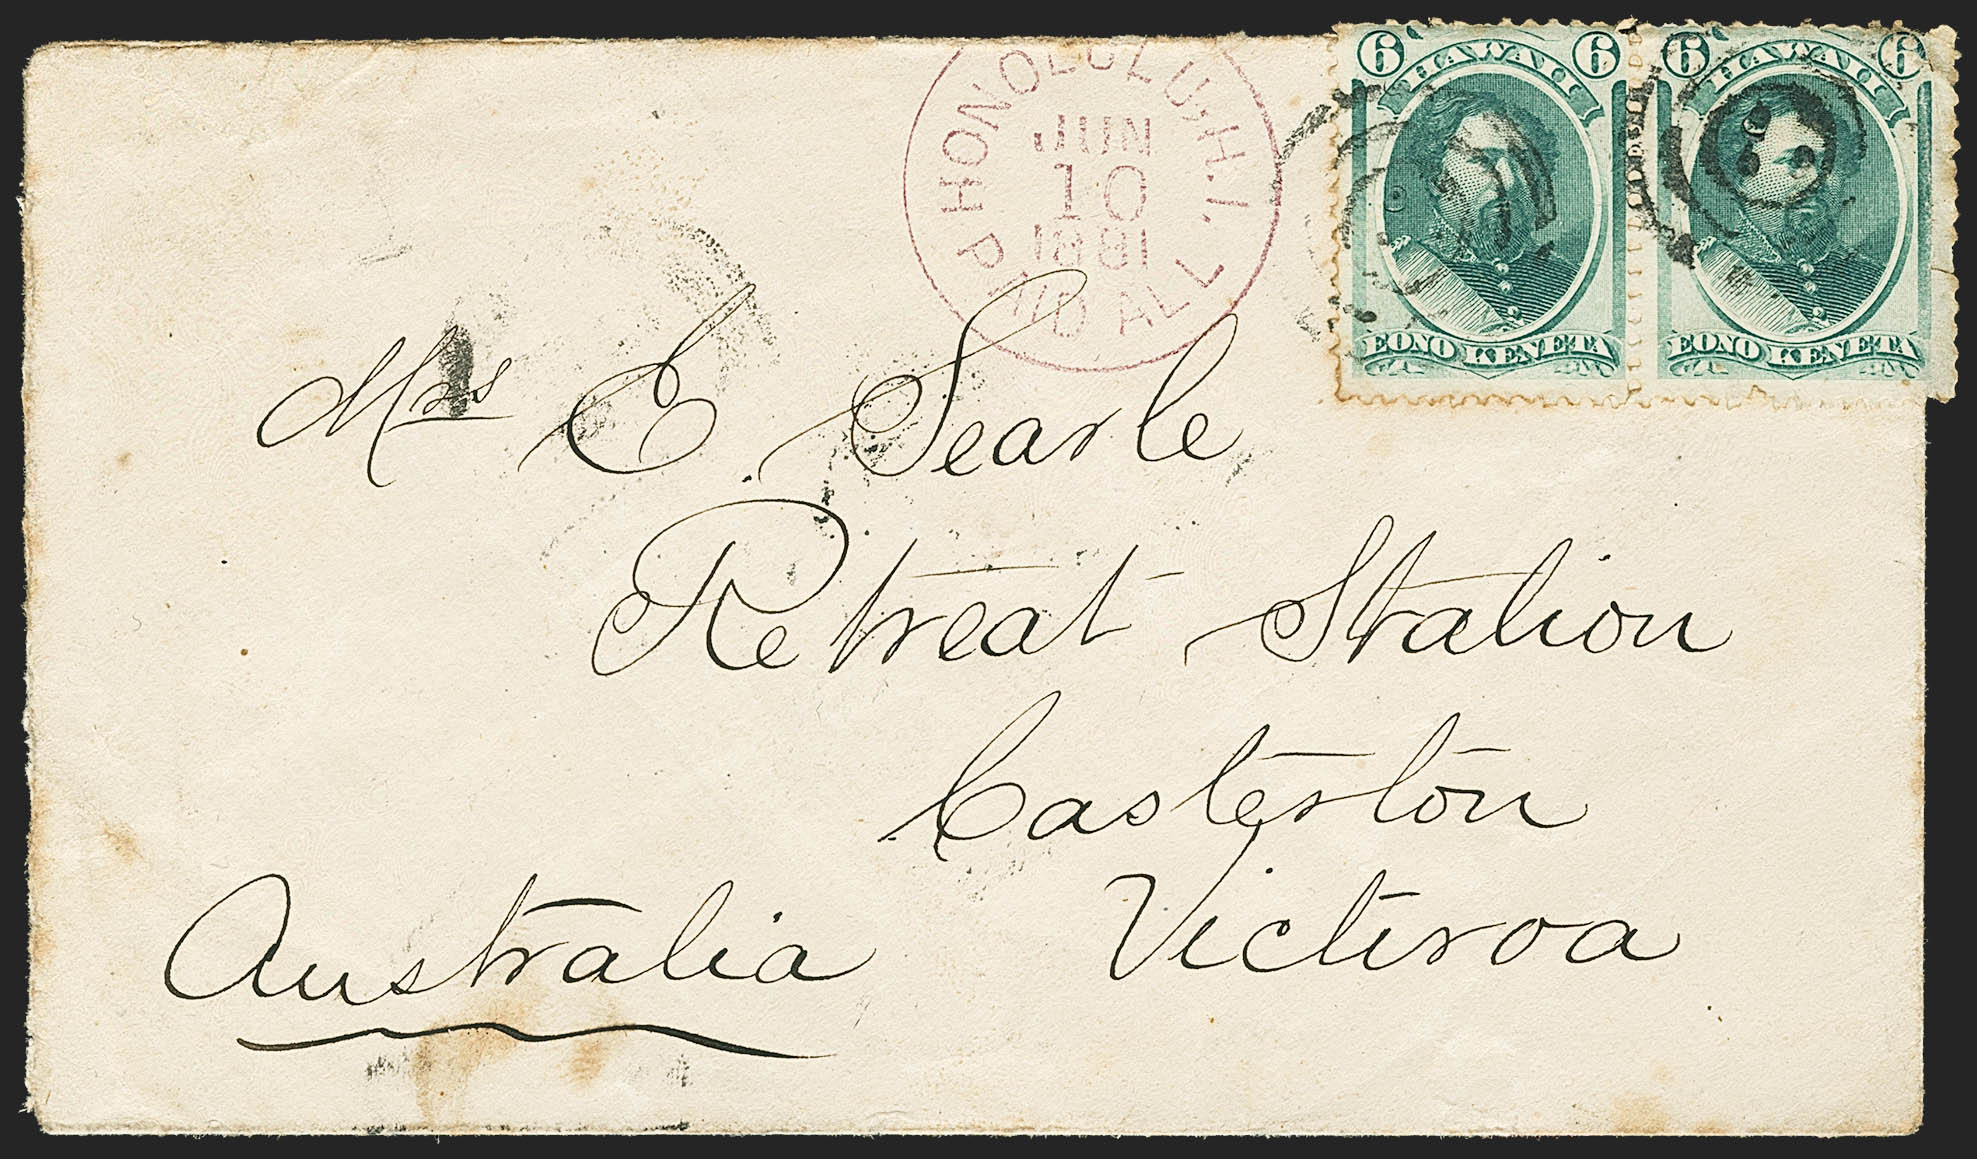 HONOLULU. H.I.
JUN
10
1881
PAID ALL
6 HAWAII 6
EONO KENETA
6 HAWAII 6
EONO KENETA
Mrs E. Searle
Retreat Station
Casterton
Victiroa
Australia